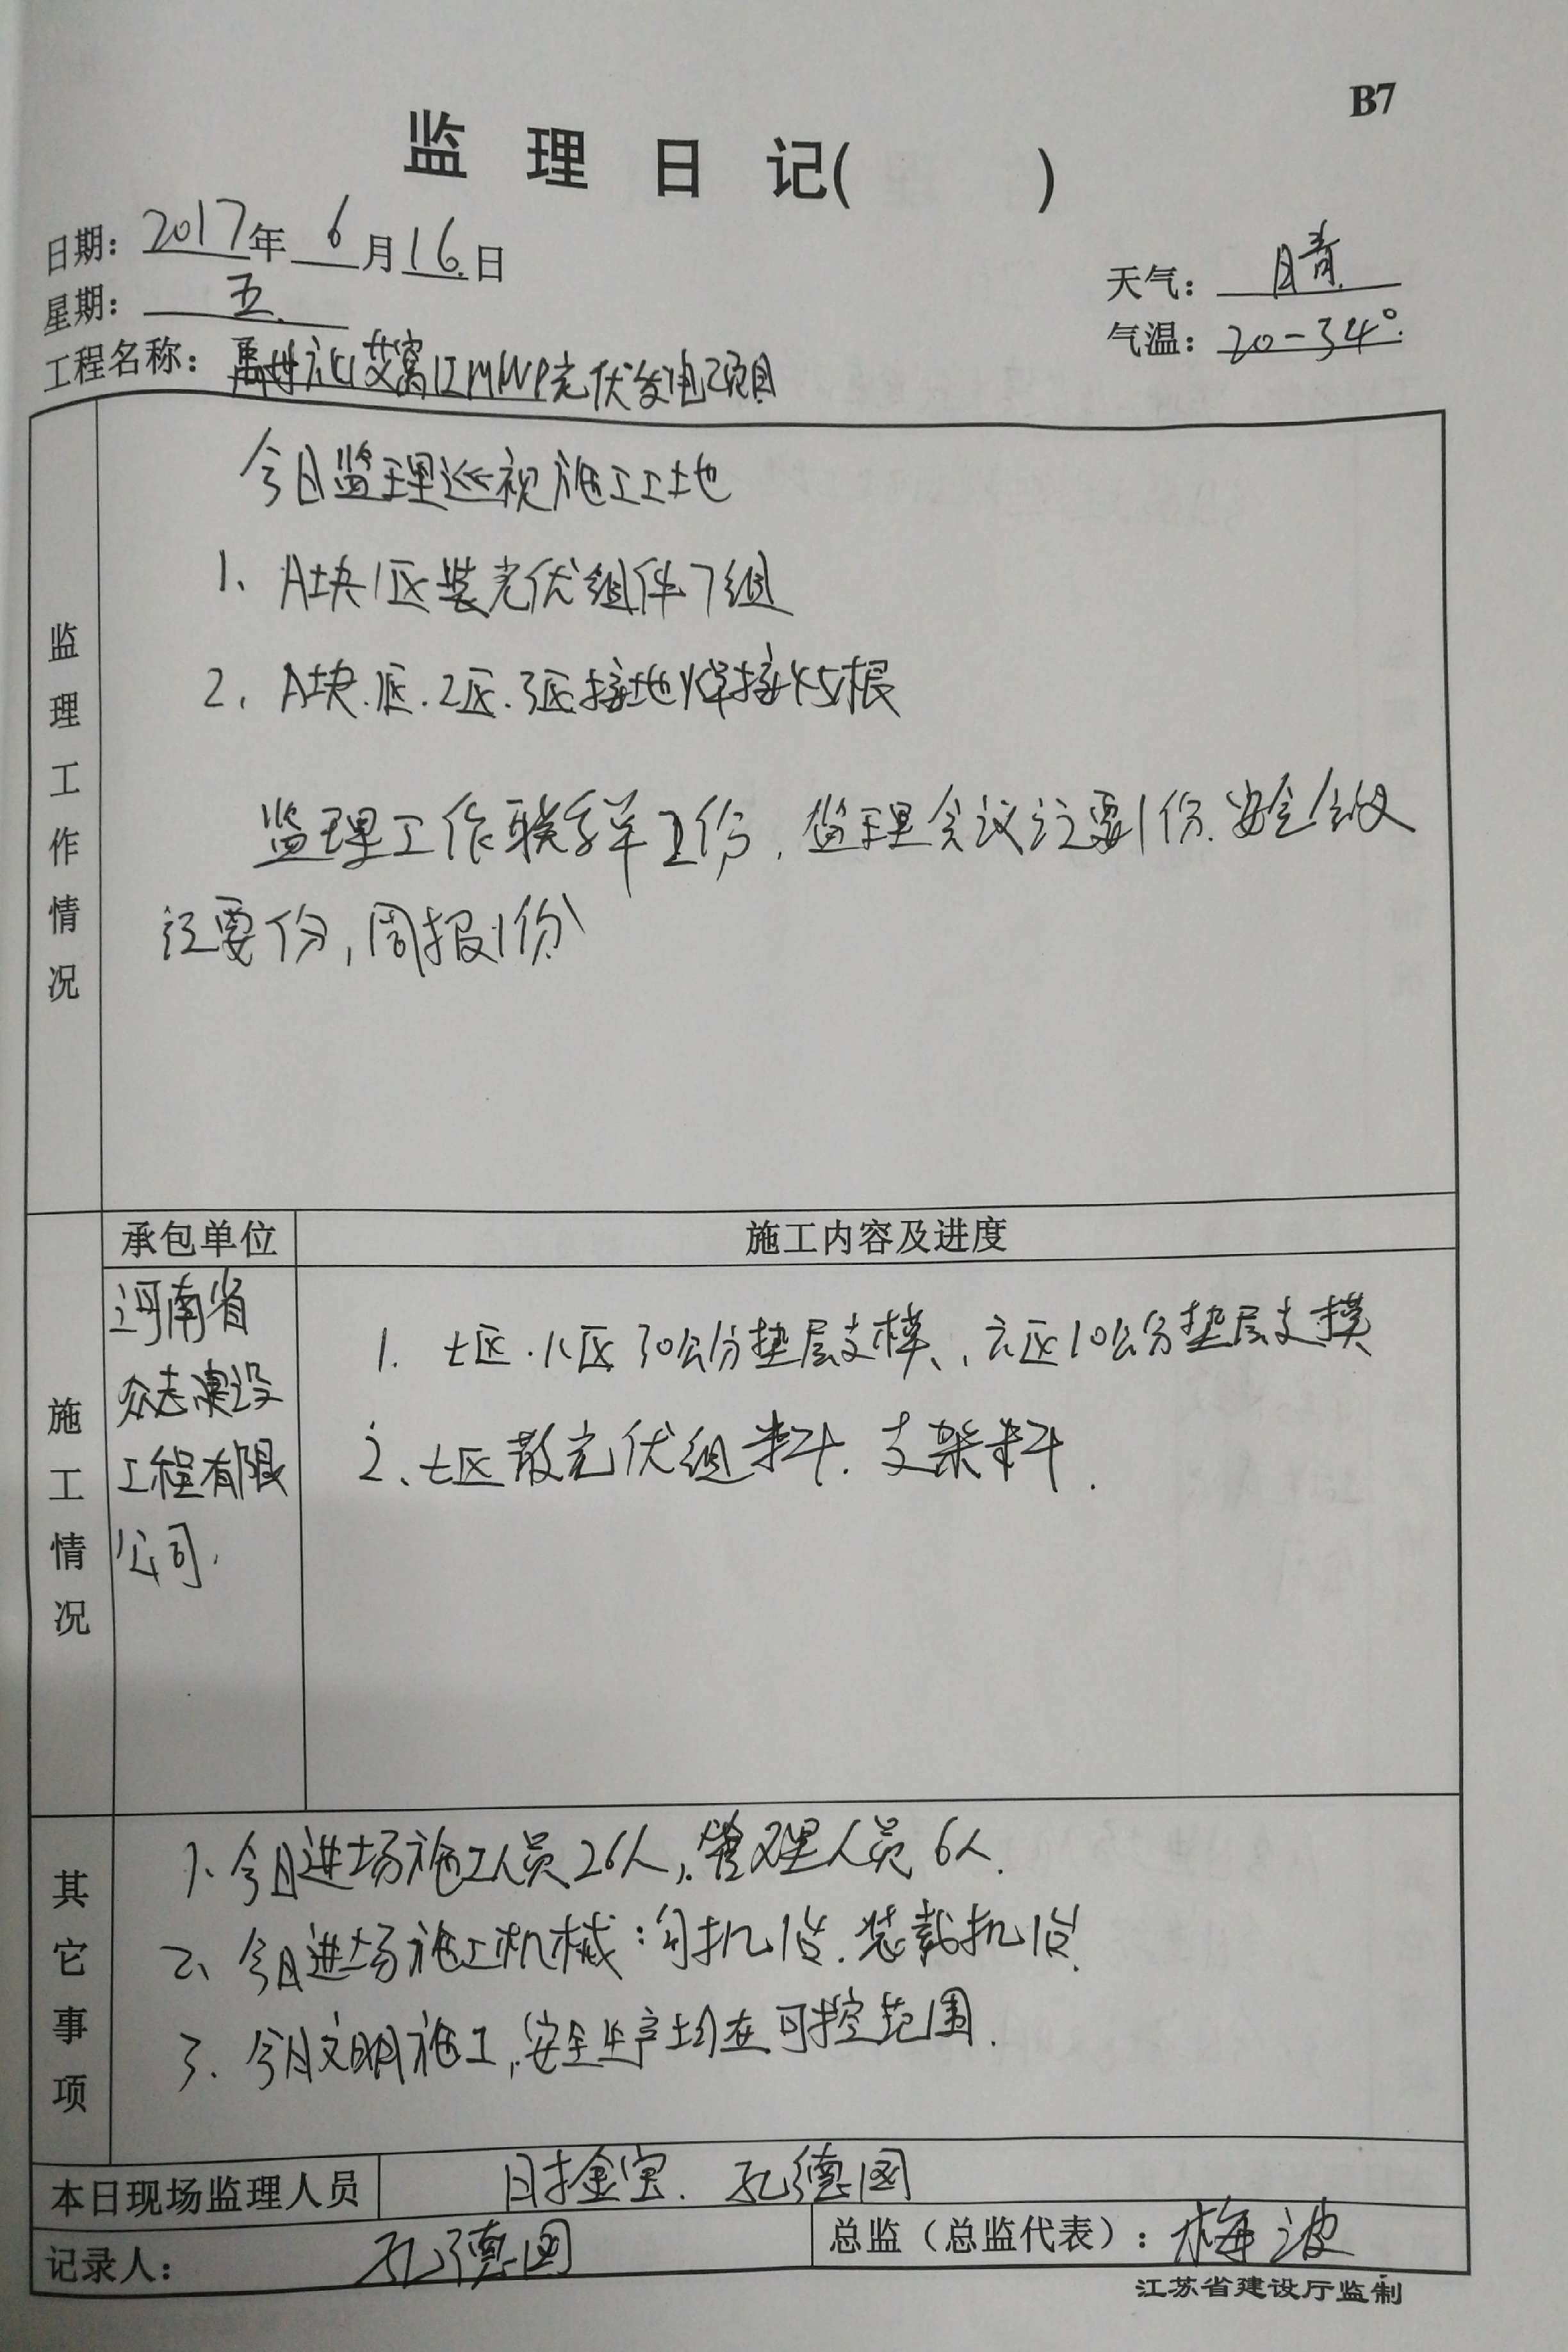 B7
监理日记( )
日期：2017年6月16日
星期：五
天气：晴
气温：20-34°
工程名称：禹州神火艾窝12MWP光伏发电项目
监理工作情况
今日监理巡视施工工地
1、A块1区装光伏组件7组
2、A块.1区.2区.3区接地焊接45根
监理工作联系单1份，监理会议记要1份.安全会议
记要1份，周报1份
施工情况
承包单位
施工内容及进度
河南省
众志建设
工程有限
公司.
1. 七区.八区30公分垫层支模、六区10公分垫层支模
2、七区散光伏组料.支架料.
其它事项
1、今日进场施工人员26人，管理人员6人.
2、今日进场施工机械：勾机1台.装载机1台.
3、今日文明施工，安全生产均在可控范围.
本日现场监理人员
金宝. 孔德国
记录人：孔德国
总监（总监代表）：梅波
江苏省建设厅监制